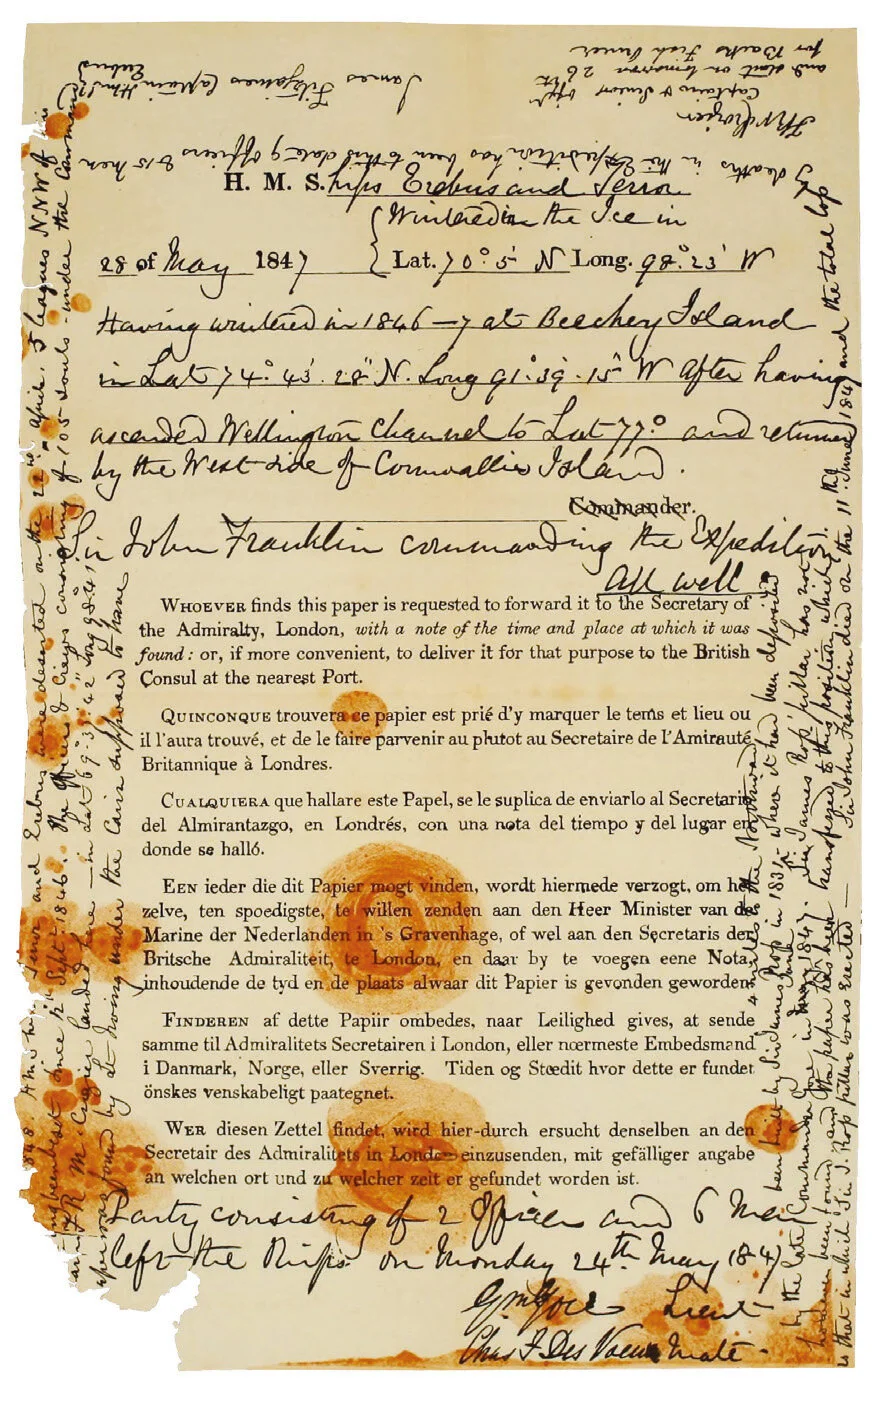 H. M. S. hips Erebus and Terror
Wintered in the Ice in
28 of May 1847 Lat. 70° 5' N Long. 98° 23' W
Having wintered in 1846–7 at Beechey Island
in Lat 74° 43' 28" N. Long 91° 39' 15" W After having
ascended Wellington Channel to Lat 77° and returned
by the West side of Cornwallis Island.
Commander.
Sir John Franklin commanding the Expedition
All well
WHOEVER finds this paper is requested to forward it to the Secretary of
the Admiralty, London, with a note of the time and place at which it was
found: or, if more convenient, to deliver it for that purpose to the British
Consul at the nearest Port.
QUINCONQUE trouvera ce papier est prié d'y marquer le tems et lieu ou
il l'aura trouvé, et de le faire parvenir au plutot au Secretaire de l'Amirauté
Britannique à Londres.
CUALQUIERA que hallare este Papel, se le suplica de enviarlo al Secretario
del Almirantazgo, en Londrés, con una nota del tiempo y del lugar en
donde se halló.
EEN ieder die dit Papier mogt vinden, wordt hiermede verzogt, om het
zelve, ten spoedigste, te willen zenden aan den Heer Minister van de
Marine der Nederlanden in 's Gravenhage, of wel aan den Secretaris der
Britsche Admiraliteit, te London, en daar by te voegen eene Nota,
inhoudende de tyd en de plaats alwaar dit Papier is gevonden geworden
FINDEREN af dette Papiir ombedes, naar Leilighed gives, at sende
samme til Admiralitets Secretairen i London, eller nœrmeste Embedsmand
i Danmark, Norge, eller Sverrig. Tiden og Stœdit hvor dette er fundet
önskes venskabeligt paategnet.
WER diesen Zettel findet, wird hier-durch ersucht denselben an den
Secretair des Admiralitets in London einzusenden, mit gefälliger angabe
an welchen ort und zu welcher zeit er gefundet worden ist.
Party consisting of 2 Officers and 6 Men
left the Ships on Monday 24th May 1847
Gm Gore Lieut
Chas F Des Voeux Mate
848. HM's Ships Terror and Erebus were deserted on the 22nd April. 5 leagues NNW of this
ing been beset since 12th Septr 1846. The Officers & Crews consisting of 105 souls – under the Command
F R M Crozier landed here – in Lat 69° 37' 42" Long 98° 41'
aper was found by Lt Irving under the Cairn supposed to have
been built by Sir James Ross in 1831 – where it had been deposited
4 miles to the Northward
by the late Commander Gore in May 1847.
June
Sir James Ross' pillar has not
however been found and the paper has been transferred to this position which
is that in which Sir J. Ross' pillar was erected – Sir John Franklin died on the 11 June 1847 and the total loss
by deaths in the Expedition has been to this date 9 Officers & 15 Men
James Fitzjames Captain HMS
Erebus
FRM Crozier
Captain & Senior Offr
and start on tomorrow 26th
for Backs Fish River